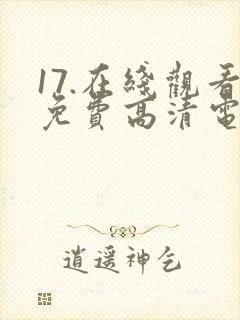 17.在綫觀看
免費高清電
逍遥神乞